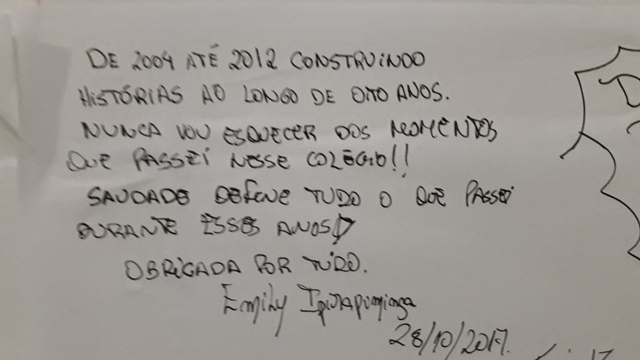 DE 2004 ATÉ 2012 CONSTRUINDO
HISTÓRIAS AO LONGO DE OITO ANOS.
NUNCA VOU ESQUECER DOS MOMENTOS
QUE PASSEI NESSE COLÉGIO!!
SAUDADE DEFINE TUDO O QUE PASSEI
DURANTE ESSES ANOS
OBRIGADA POR TUDO.
Emily
28/10/2017.